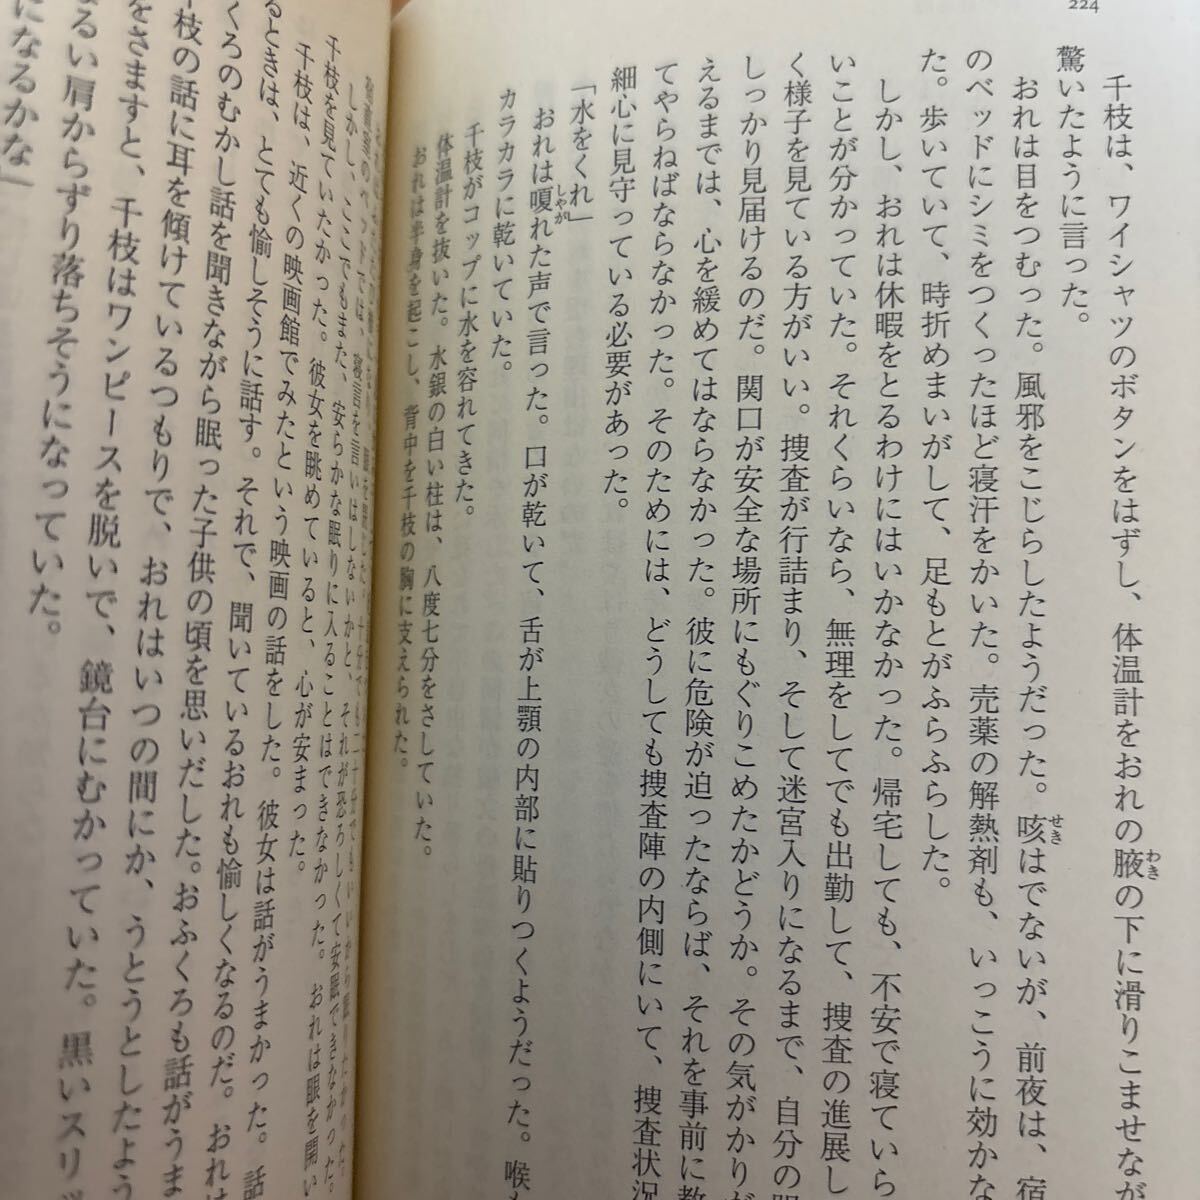 224
千枝は、ワイシャツのボタンをはずし、体温計をおれの腋の下に滑りこませなが
わき
驚いたように言った。
おれは目をつむった。風邪をこじらしたようだった。咳はでないが、前夜は、宿
せき
のベッドにシミをつくったほど寝汗をかいた。売薬の解熱剤も、いっこうに効かな
た。歩いていて、時折めまいがして、足もとがふらふらした。
しかし、おれは休暇をとるわけにはいかなかった。帰宅しても、不安で寝ていら
いことが分かっていた。それくらいなら、無理をしてでも出勤して、捜査の進展し
く様子を見ている方がいい。捜査が行詰まり、そして迷宮入りになるまで、自分の眼
しっかり見届けるのだ。関口が安全な場所にもぐりこめたかどうか。その気がかりが
えるまでは、心を緩めてはならなかった。彼に危険が迫ったならば、それを事前に教
てやらねばならなかった。そのためには、どうしても捜査陣の内側にいて、捜査状況
細心に見守っている必要があった。
「水をくれ」
おれは嗄れた声で言った。口が乾いて、舌が上顎の内部に貼りつくようだった。喉も
しやが
カラカラに乾いていた。
千枝がコップに水を容れてきた。
体温計を抜いた。水銀の白い柱は、八度七分をさしていた。
おれは半身を起こし、背中を千枝の胸に支えられた。
宿直室のベッドでは、寝言を言いはしないかと、それが恐ろしくて安眠できなかった。
しかし、ここでもまた、安らかな眠りに入ることはできなかった。おれは眼を開い
千枝を見ていたかった。彼女を眺めていると、心が安まった。
千枝は、近くの映画館でみたという映画の話をした。彼女は話がうまかった。話
るときは、とても愉しそうに話す。それで、聞いているおれも愉しくなるのだ。おれ
くろのむかし話を聞きながら眠った子供の頃を思いだした。おふくろも話がうま
枝の話に耳を傾けているつもりで、おれはいつの間にか、うとうとしたよう
をさますと、千枝はワンピースを脱いで、鏡台にむかっていた。黒いスリッ
るい肩からずり落ちそうになっていた。
になるかな」